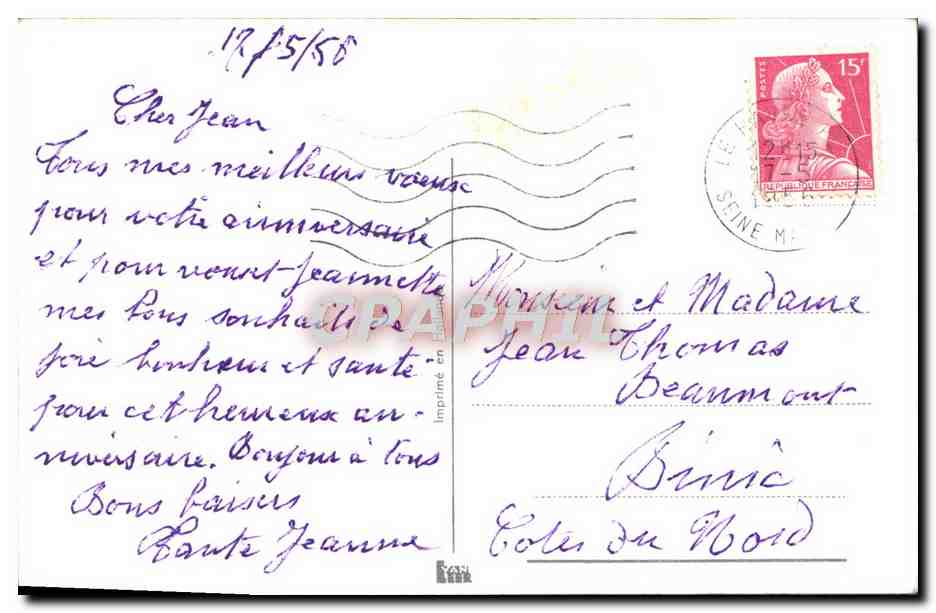 17/5/58
Cher Jean
Tous mes meilleurs voeux
pour votre anniversaire
et pour vous et Jeannette
mes bons souhaits de
joie bonheur et santé
pour cet heureux an-
niversaire. Bonjour à tous
Bons baisers
Tante Jeanne
Imprimé en Hollande
POSTES
15F
REPUBLIQUE FRANÇAISE
LE
SEINE
Monsieur et Madame
Jean Thomas
Beaumont
Binic
Cotes du Nord
CPAPHIL